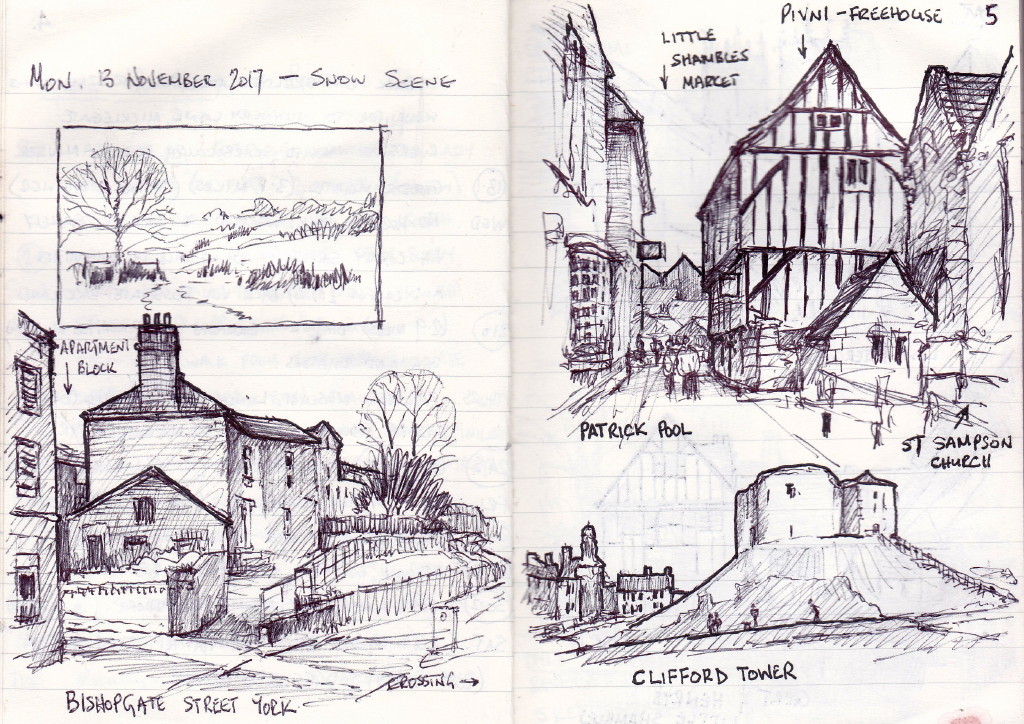 MON. 13 NOVEMBER 2017 - SNOW SCENE
APARTMENT
BLOCK
CROSSING →
BISHOPGATE STREET YORK
5
PIVNI - FREEHOUSE
LITTLE
SHAMBLES
MARKET
PATRICK POOL
ST SAMPSON
CHURCH
CLIFFORD TOWER